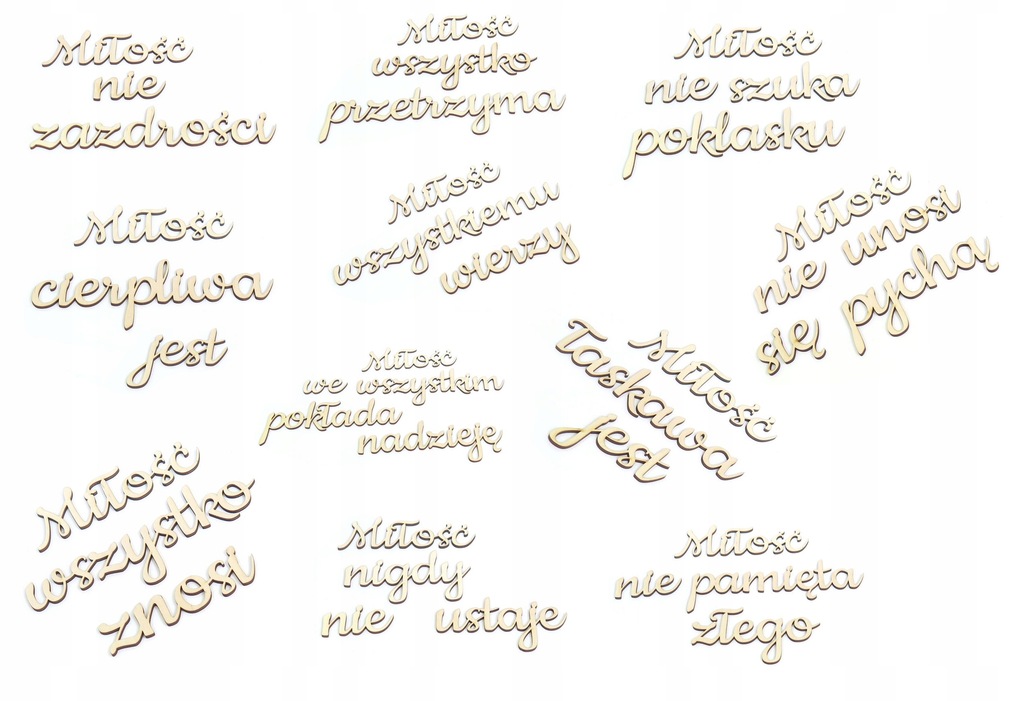 Miłość
nie
zazdrości
Miłość
wszystko
przetrzyma
Miłość
nie szuka
poklasku
Miłość
cierpliwa
jest
Miłość
wszystkiemu
wierzy
Miłość
nie unosi
się pychą
Miłość
we wszystkim
pokłada
nadzieję
Miłość
łaskawa
jest
Miłość
wszystko
znosi
Miłość
nigdy
nie ustaje
Miłość
nie pamięta
złego